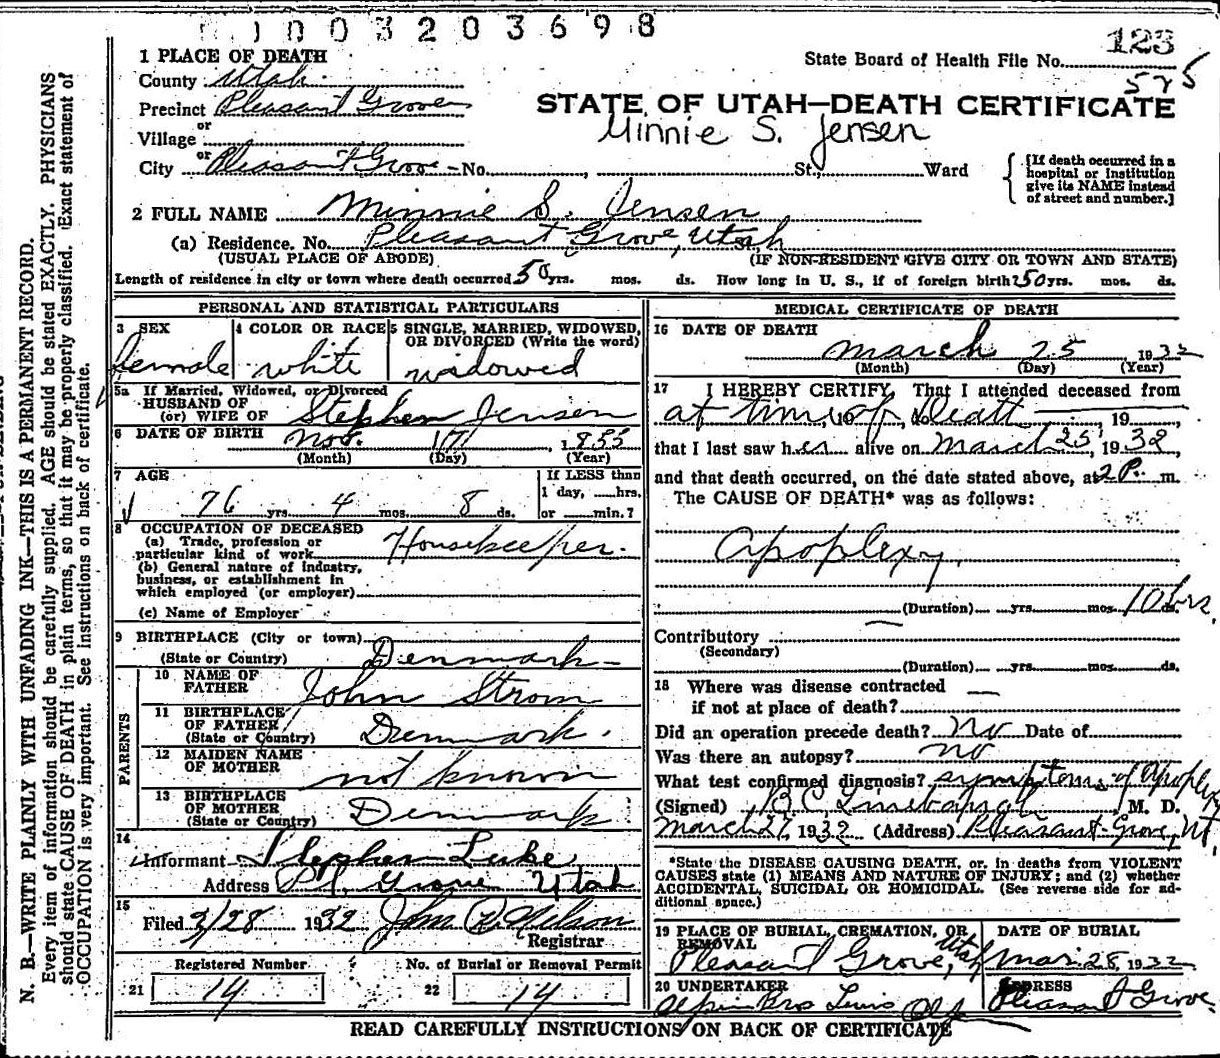 1003203698
123
State Board of Health File No.
575
1 PLACE OF DEATH
County Utah
STATE OF UTAH—DEATH CERTIFICATE
Precinct Pleasant Grove
or
Village
Minnie S. Jensen
or
City Pleasant Grove - No. , St., Ward
[If death occurred in a
hospital or institution
give its NAME instead
of street and number.]
2 FULL NAME Minnie S. Jensen
(a) Residence. No. Pleasant Grove, Utah
(USUAL PLACE OF ABODE) (IF NON-RESIDENT GIVE CITY OR TOWN AND STATE)
Length of residence in city or town where death occurred 50 yrs. mos. ds. How long in U. S., if of foreign birth? 50 yrs. mos. ds.
PERSONAL AND STATISTICAL PARTICULARS
3 SEX
female
4 COLOR OR RACE
white
5 SINGLE, MARRIED, WIDOWED,
OR DIVORCED (Write the word)
widowed
5a If Married, Widowed, or Divorced
HUSBAND OF
(or) WIFE OF Stephen Jensen
6 DATE OF BIRTH Nov. 17, 1855
(Month) (Day) (Year)
7 AGE
76 yrs. 4 mos. 8 ds.
If LESS than
1 day, hrs.
or min.?
8 OCCUPATION OF DECEASED
(a) Trade, profession or
particular kind of work Housekeeper.
(b) General nature of industry,
business, or establishment in
which employed (or employer)
(c) Name of Employer
9 BIRTHPLACE (City or town)
(State or Country) Denmark
PARENTS
10 NAME OF
FATHER John Strom
11 BIRTHPLACE
OF FATHER
(State or Country) Denmark.
12 MAIDEN NAME
OF MOTHER not known
13 BIRTHPLACE
OF MOTHER
(State or Country) Denmark
14
Informant Stephen Luke
Address Pl. Grove Utah
15
Filed 3/28 1932 John Nelson
Registrar
Registered Number
21 14
No. of Burial or Removal Permit
22 14
MEDICAL CERTIFICATE OF DEATH
16 DATE OF DEATH
March 25, 1932
(Month) (Day) (Year)
17 I HEREBY CERTIFY, That I attended deceased from
at time of death 19 ,
that I last saw her alive on March 25, 1932,
and that death occurred, on the date stated above, at 2 P. m.
The CAUSE OF DEATH* was as follows:
Apoplexy
(Duration) yrs. mos. 10 hrs. ds.
Contributory
(Secondary)
(Duration) yrs. mos. ds.
18 Where was disease contracted
if not at place of death?
Did an operation precede death? No Date of
Was there an autopsy? no
What test confirmed diagnosis? symptoms of apoplexy
(Signed) M. D.
March 1932 (Address) Pleasant Grove, Ut.
*State the DISEASE CAUSING DEATH, or, in deaths from VIOLENT
CAUSES state (1) MEANS AND NATURE OF INJURY; and (2) whether
ACCIDENTAL, SUICIDAL OR HOMICIDAL. (See reverse side for ad-
ditional space.)
19 PLACE OF BURIAL, CREMATION, OR
REMOVAL
Pleasant Grove, Utah
DATE OF BURIAL
Mar. 28, 1932
20 UNDERTAKER
ADDRESS
Pleasant Grove
READ CAREFULLY INSTRUCTIONS ON BACK OF CERTIFICATE
N. B.—WRITE PLAINLY WITH UNFADING INK—THIS IS A PERMANENT RECORD.
Every item of information should be carefully supplied. AGE should be stated EXACTLY. PHYSICIANS
should state CAUSE OF DEATH in plain terms, so that it may be properly classified. Exact statement of
OCCUPATION is very important. See instructions on back of certificate.